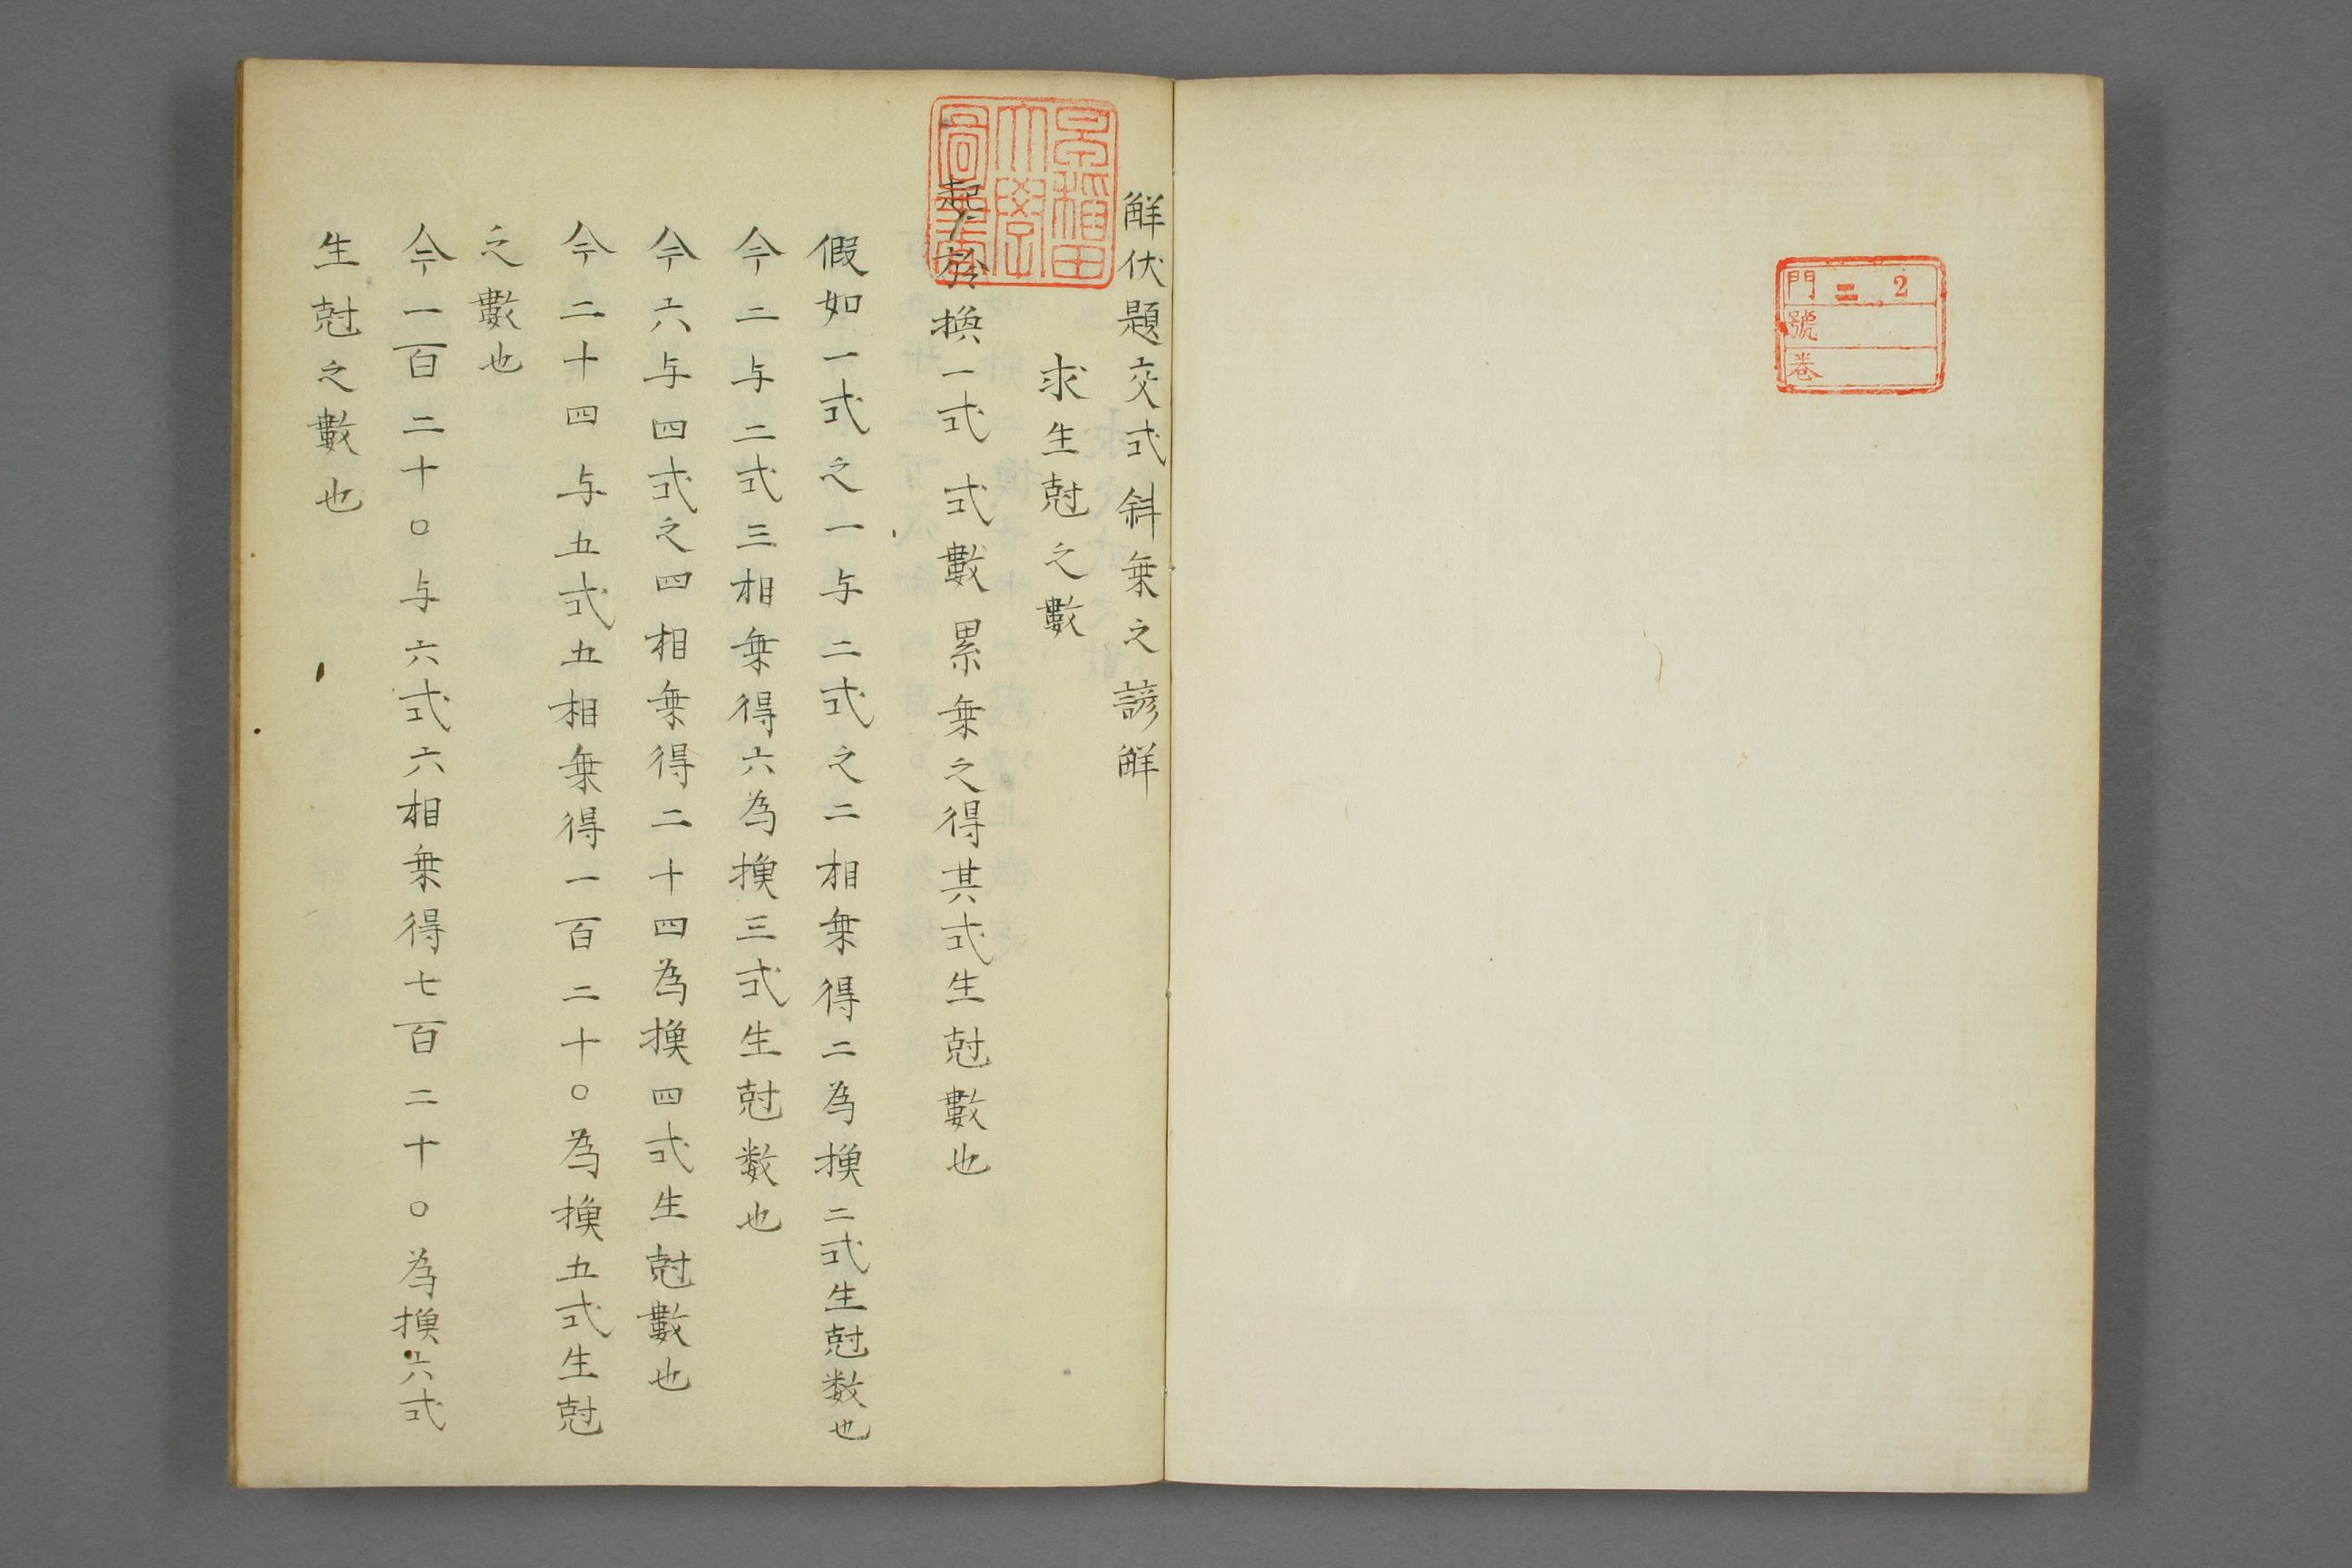 門 二 2
號
巻
早稲田
大學
圖書
觧伏題交式斜乗之諺觧
求生尅之數
起於換一式 式數累乗之得其式生尅數也
假如一式之一与二式之二相乗得二為換二式生尅数也
今二与二式三相乗得六為換三式生尅数也
今六与四式之四相乗得二十四為換四式生尅數也
今二十四与五式五相乗得一百二十〇為換五式生尅
之數也
今一百二十〇与六式六相乗得七百二十〇為換六式
生尅之數也